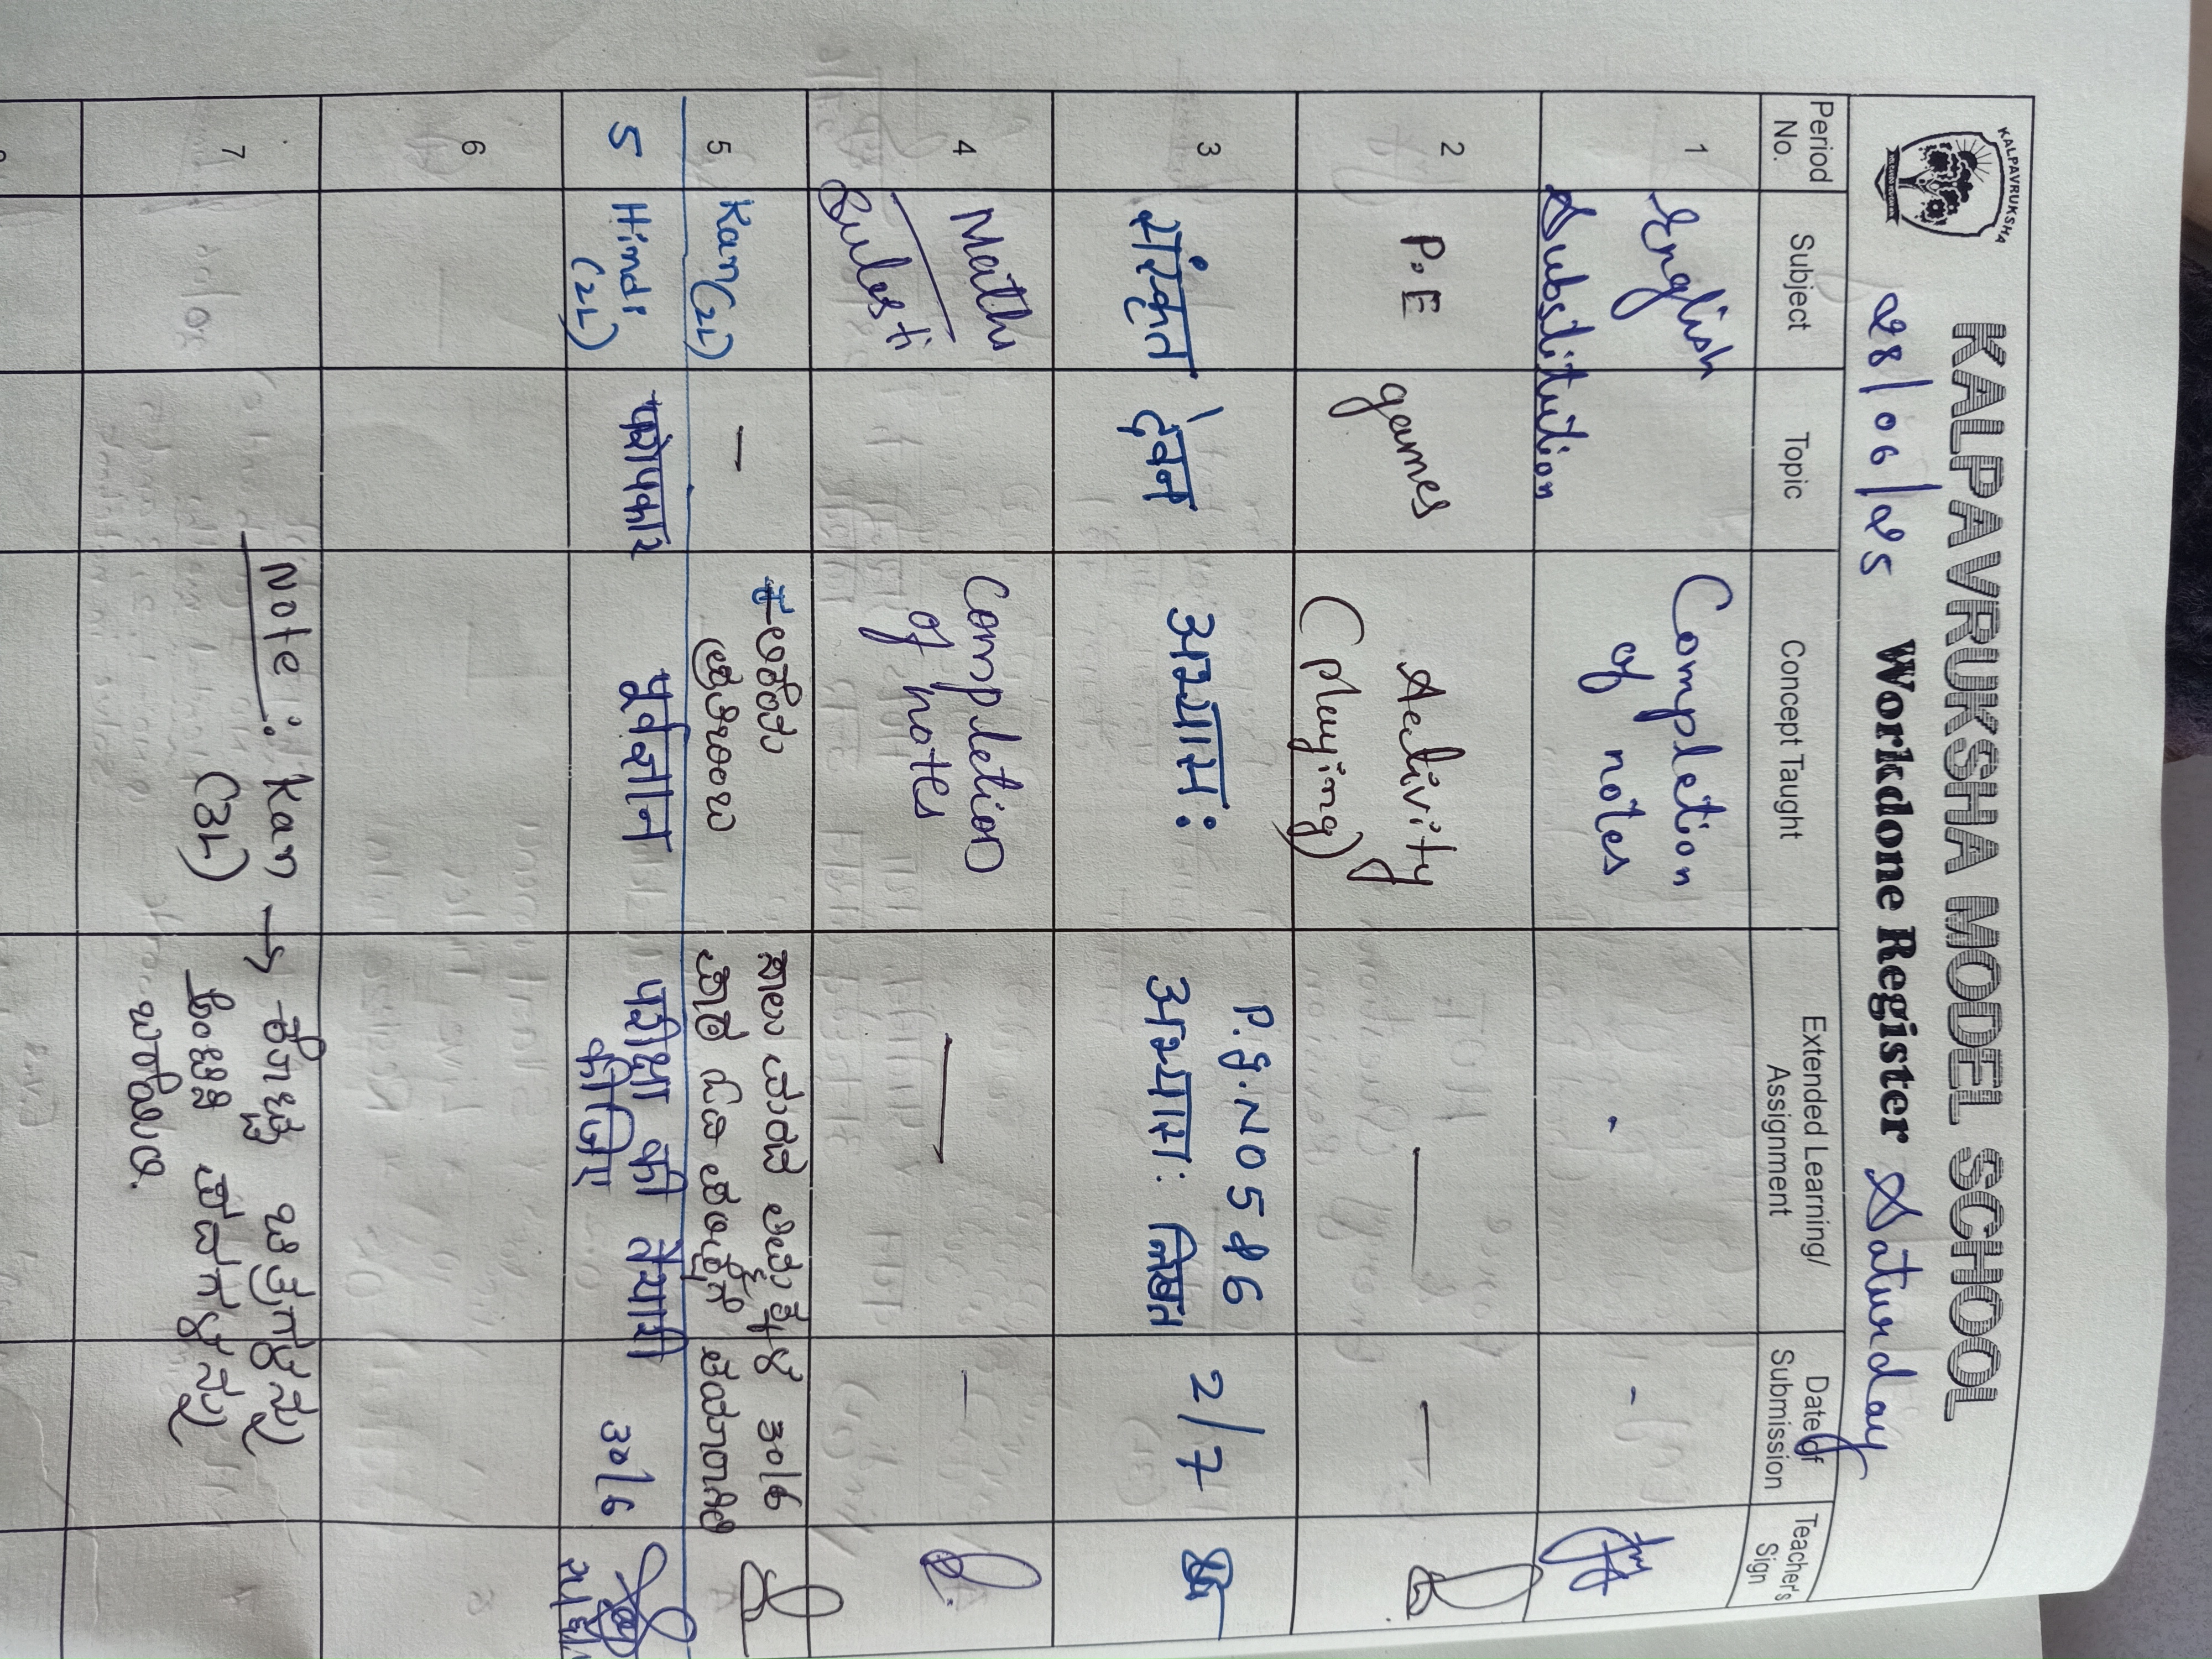 KALPAVRUKSHA
KALPAVRUKSHA MODEL SCHOOL
28/06/25 Workdone Register Saturday
Period No. Subject Topic Concept Taught Extended Learning/ Assignment Date of Submission Teacher's Sign
1 English Completion - -
Substitution of notes
2 P.E games Activity — —
(playing)
3 संस्कृत अभ्यासः P.g.No 5 & 6 2/7
अभ्यासः लिखत
4 Maths Completion — —
Substi of notes
5 Kan(2L) — 30/6
5 Hindi पूर्वज्ञान परीक्षा की तैयारी 30/6
(2L) कीजिए
6
7 Note: Kan → ಕೊಟ್ಟ ಚಿತ್ರಗಳನ್ನು
(3L) ಪದಗಳನ್ನು
ಬರೆಯಿರಿ.